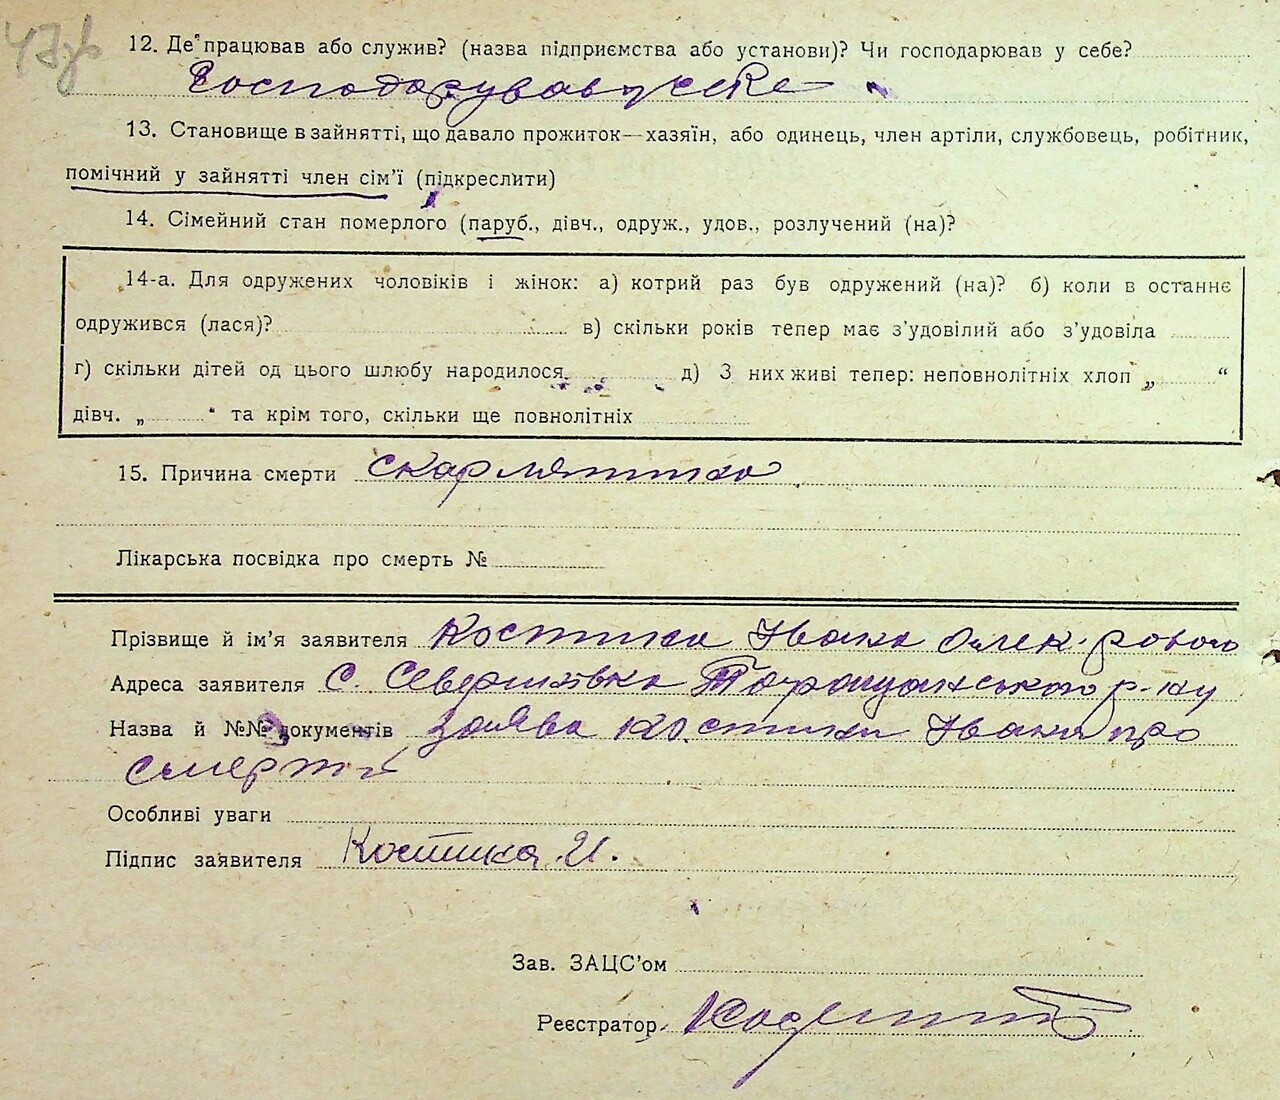 47зв
12. Де працював або служив? (назва підприємства або установи)? Чи господарював у себе?
Господарував у себе
13. Становище в зайнятті, що давало прожиток—хазяїн, або одинець, член артіли, службовець, робітник,
помічний у зайнятті член сім'ї (підкреслити)
14. Сімейний стан померлого (паруб., дівч., одруж., удов., розлучений (на)?
14-а. Для одружених чоловіків і жінок: а) котрий раз був одружений (на)? б) коли в останнє
одружився (лася)? в) скільки років тепер має з'удовілий або з'удовіла
г) скільки дітей од цього шлюбу народилося д) З них живі тепер: неповнолітніх хлоп „ “
дівч. „ “ та крім того, скільки ще повнолітніх
15. Причина смерти скарлятина
Лікарська посвідка про смерть №
Прізвище й ім'я заявителя Костика Івана Олек-ровога
Адреса заявителя с. Северинівка Таращанського р-ну
Назва й №№ документів заява Костики Івана про
смерть
Особливі уваги
Підпис заявителя Костика И.
Зав. ЗАЦС'ом
Реєстратор